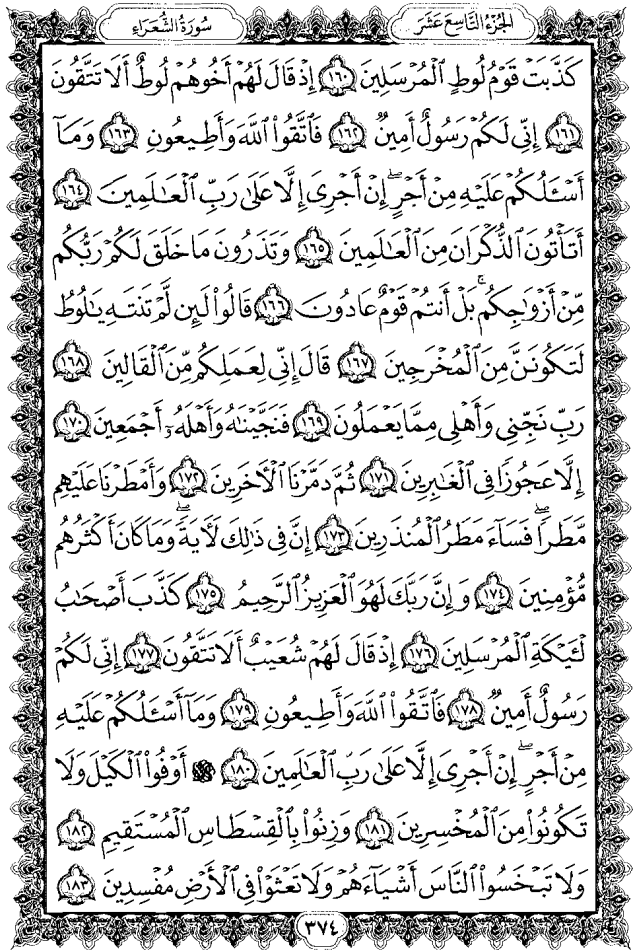 الجزء التاسع عشر
سورة الشعراء
كَذَّبَتْ قَوْمُ لُوطٍ ٱلْمُرْسَلِينَ ١٦٠ إِذْ قَالَ لَهُمْ أَخُوهُمْ لُوطٌ أَلَا تَتَّقُونَ
١٦١ إِنِّى لَكُمْ رَسُولٌ أَمِينٌ ١٦٢ فَٱتَّقُوا۟ ٱللَّهَ وَأَطِيعُونِ ١٦٣ وَمَآ
أَسْـَٔلُكُمْ عَلَيْهِ مِنْ أَجْرٍ ۖ إِنْ أَجْرِىَ إِلَّا عَلَىٰ رَبِّ ٱلْعَـٰلَمِينَ ١٦٤
أَتَأْتُونَ ٱلذُّكْرَانَ مِنَ ٱلْعَـٰلَمِينَ ١٦٥ وَتَذَرُونَ مَا خَلَقَ لَكُمْ رَبُّكُم
مِّنْ أَزْوَٰجِكُم ۚ بَلْ أَنتُمْ قَوْمٌ عَادُونَ ١٦٦ قَالُوا۟ لَئِن لَّمْ تَنتَهِ يَـٰلُوطُ
لَتَكُونَنَّ مِنَ ٱلْمُخْرَجِينَ ١٦٧ قَالَ إِنِّى لِعَمَلِكُم مِّنَ ٱلْقَالِينَ ١٦٨
رَبِّ نَجِّنِى وَأَهْلِى مِمَّا يَعْمَلُونَ ١٦٩ فَنَجَّيْنَـٰهُ وَأَهْلَهُۥٓ أَجْمَعِينَ ١٧٠
إِلَّا عَجُوزًا فِى ٱلْغَـٰبِرِينَ ١٧١ ثُمَّ دَمَّرْنَا ٱلْـَٔاخَرِينَ ١٧٢ وَأَمْطَرْنَا عَلَيْهِم
مَّطَرًا ۖ فَسَآءَ مَطَرُ ٱلْمُنذَرِينَ ١٧٣ إِنَّ فِى ذَٰلِكَ لَـَٔايَةً ۖ وَمَا كَانَ أَكْثَرُهُم
مُّؤْمِنِينَ ١٧٤ وَإِنَّ رَبَّكَ لَهُوَ ٱلْعَزِيزُ ٱلرَّحِيمُ ١٧٥ كَذَّبَ أَصْحَـٰبُ
لْـَٔيْكَةِ ٱلْمُرْسَلِينَ ١٧٦ إِذْ قَالَ لَهُمْ شُعَيْبٌ أَلَا تَتَّقُونَ ١٧٧ إِنِّى لَكُمْ
رَسُولٌ أَمِينٌ ١٧٨ فَٱتَّقُوا۟ ٱللَّهَ وَأَطِيعُونِ ١٧٩ وَمَآ أَسْـَٔلُكُمْ عَلَيْهِ
مِنْ أَجْرٍ ۖ إِنْ أَجْرِىَ إِلَّا عَلَىٰ رَبِّ ٱلْعَـٰلَمِينَ ١٨٠ ۞ أَوْفُوا۟ ٱلْكَيْلَ وَلَا
تَكُونُوا۟ مِنَ ٱلْمُخْسِرِينَ ١٨١ وَزِنُوا۟ بِٱلْقِسْطَاسِ ٱلْمُسْتَقِيمِ ١٨٢
وَلَا تَبْخَسُوا۟ ٱلنَّاسَ أَشْيَآءَهُمْ وَلَا تَعْثَوْا۟ فِى ٱلْأَرْضِ مُفْسِدِينَ ١٨٣
٣٧٤